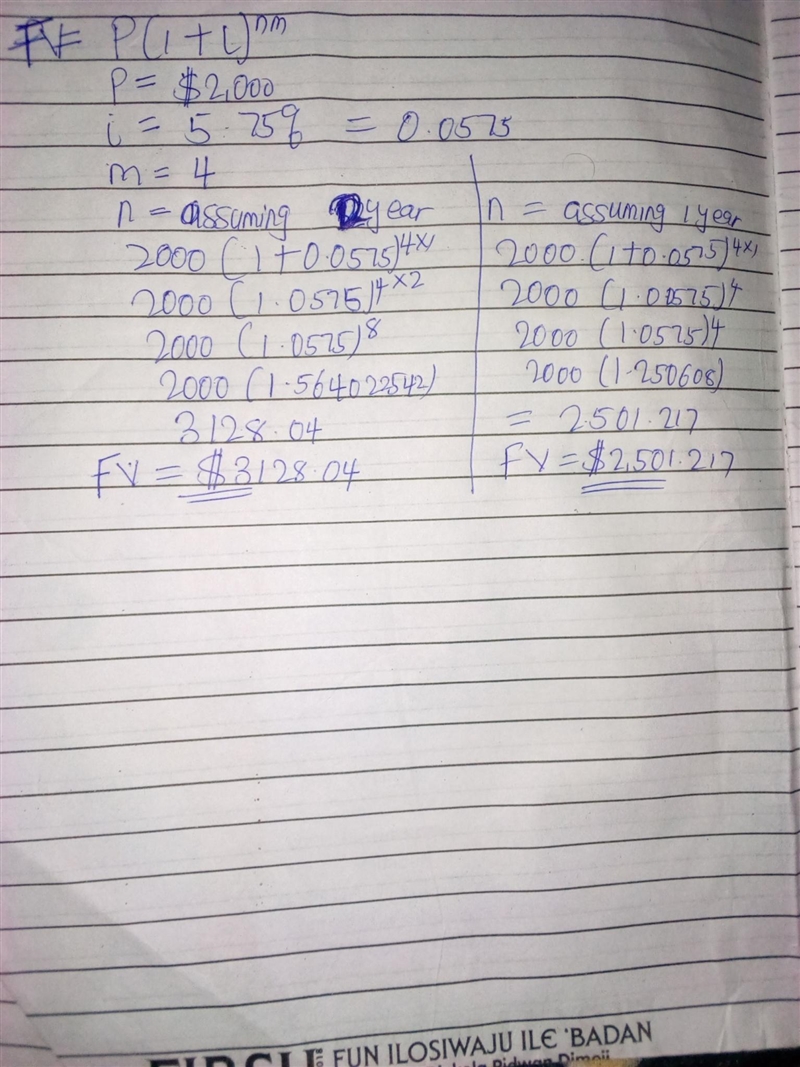 FV = P(1+i)^nm
P = $2,000
i = 5.75% = 0.0575
m = 4
n = assuming 2 year
2000 (1+0.0575)^4×1
2000 (1.0575)^4×2
2000 (1.0575)^8
2000 (1.564022542)
3128.04
FV = $3128.04
n = assuming 1 year
2000.(1+0.0575)^4×1
2000 (1.00575)^4
2000 (1.0575)^4
2000 (1.250608)
= 2.501.217
FV = $2,501.217
FUN ILOSIWAJU ILE 'BADAN
Ridwan Dimeji